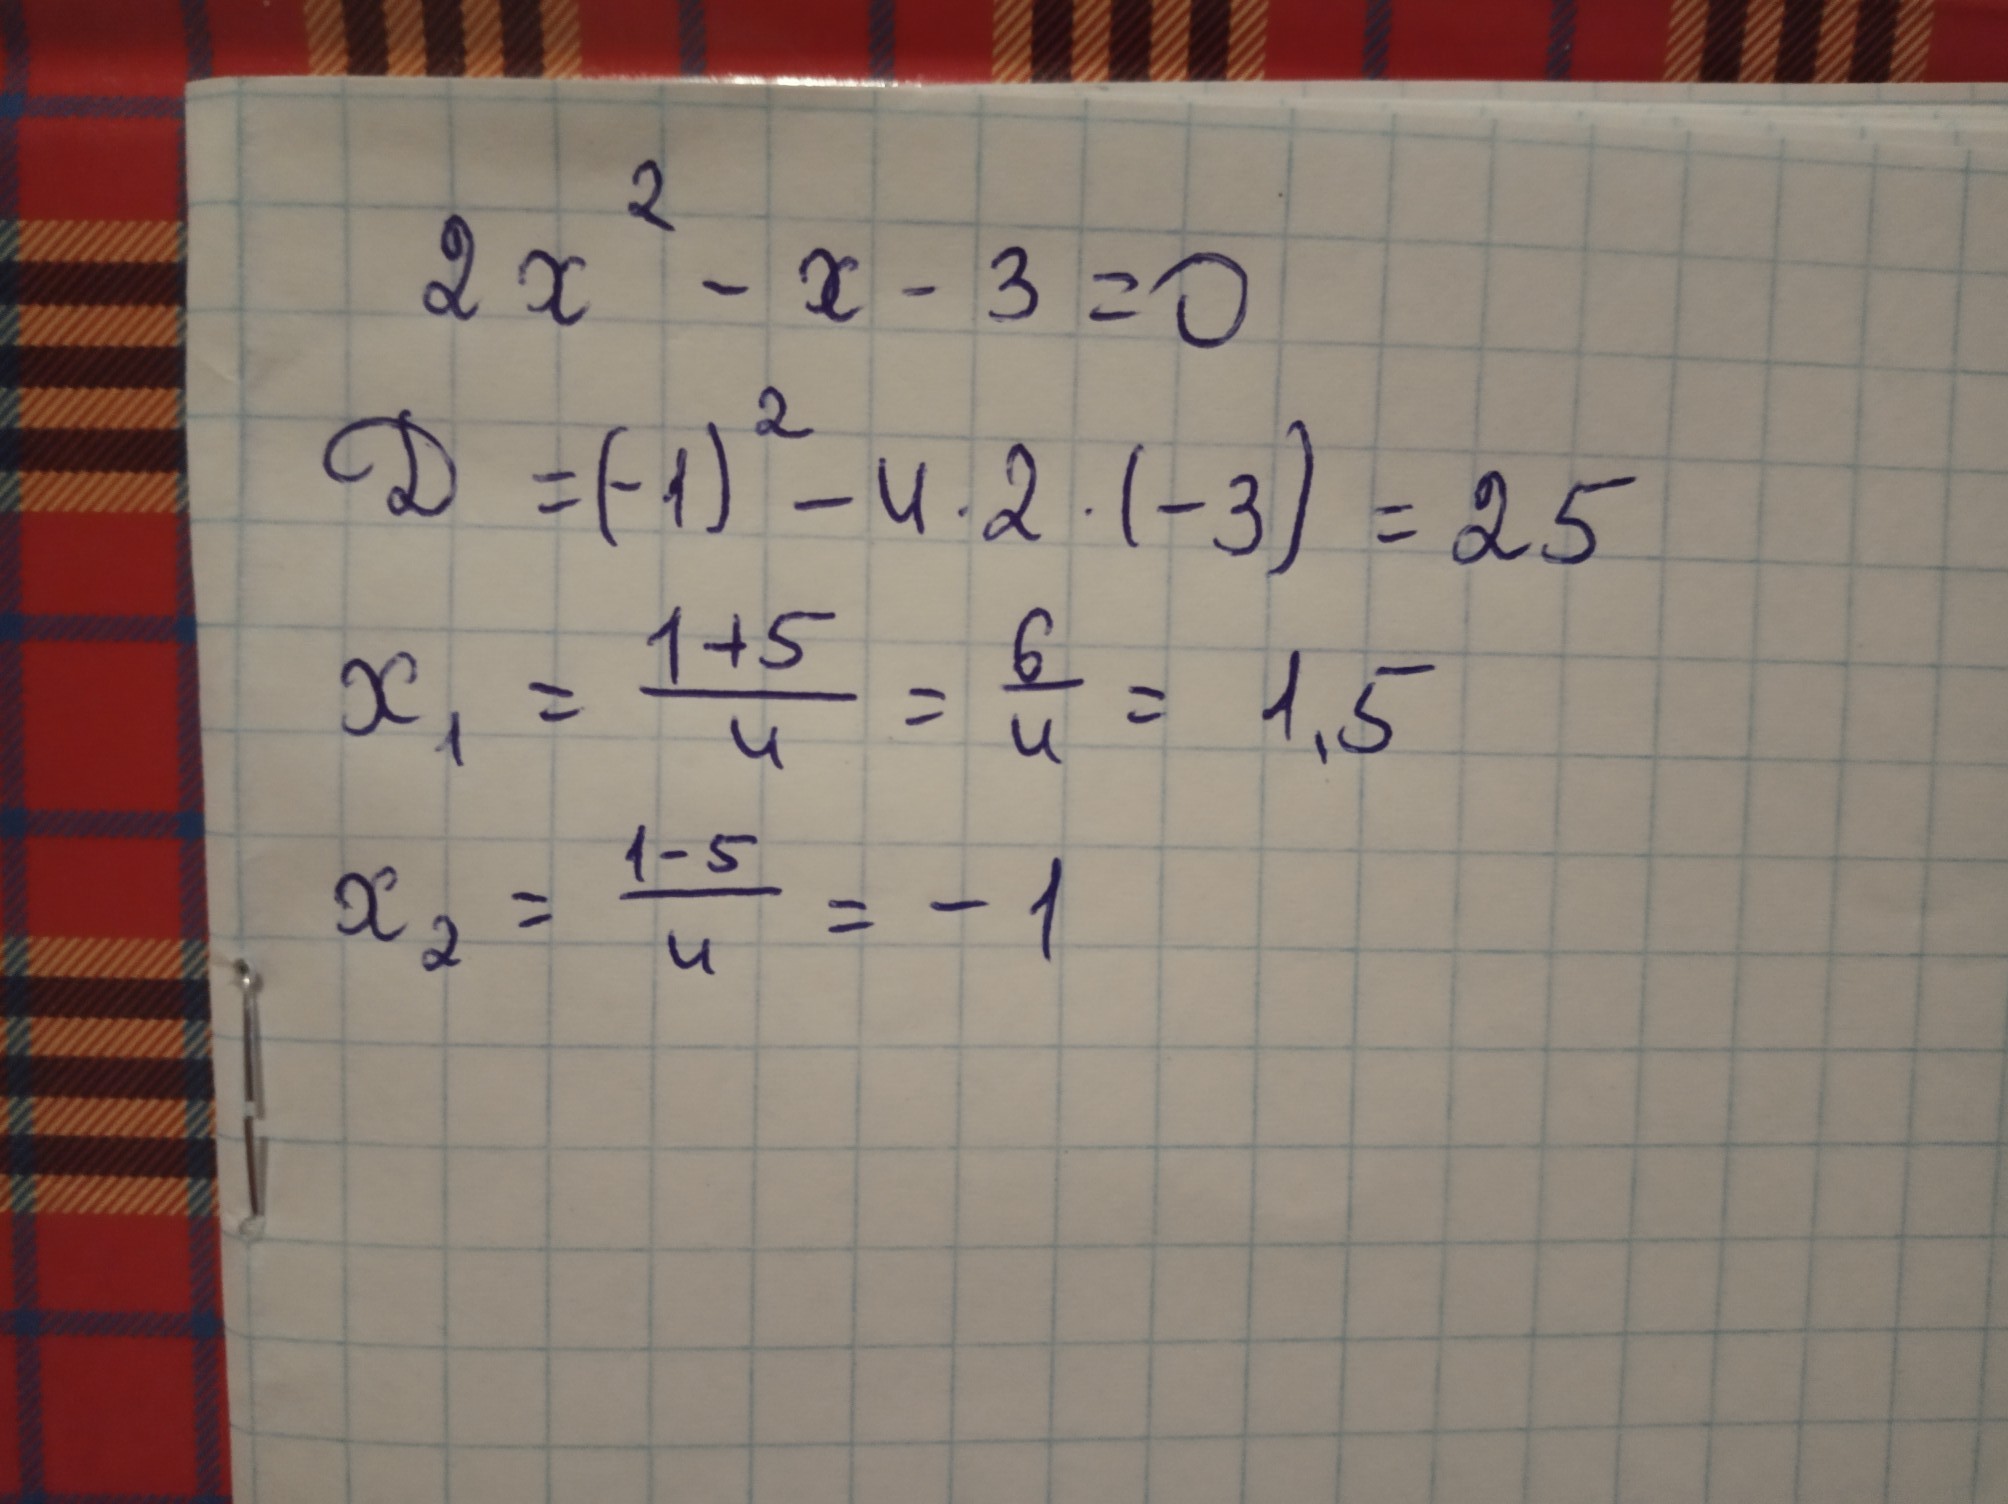 2x² - x - 3 = 0
D = (-1)² - 4 · 2 · (-3) = 25
x₁ = (1+5)/4 = 6/4 = 1,5
x₂ = (1-5)/4 = -1